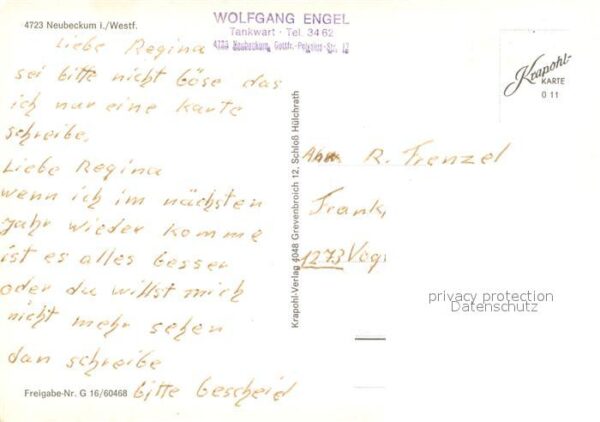 4723 Neubeckum i./Westf.
WOLFGANG ENGEL
Tankwart · Tel. 3462
4723 Neubeckum, Gottfr.-Polysius-Str. 12
Liebe Regina
sei bitte nicht böse das
ich nur eine Karte
schreibe.
Liebe Regina
wenn ich im nächsten
Jahr wieder komme
ist es alles besser
oder du willst mich
nicht mehr sehen
dan schreibe
bitte bescheid
Freigabe-Nr. G 16/60468
Krapohl-Verlag 4048 Grevenbroich 12, Schloß Hülchrath
Krapohl-
KARTE
O 11
R. Frenzel
Frank,
1273 Vog
privacy protection
Datenschutz